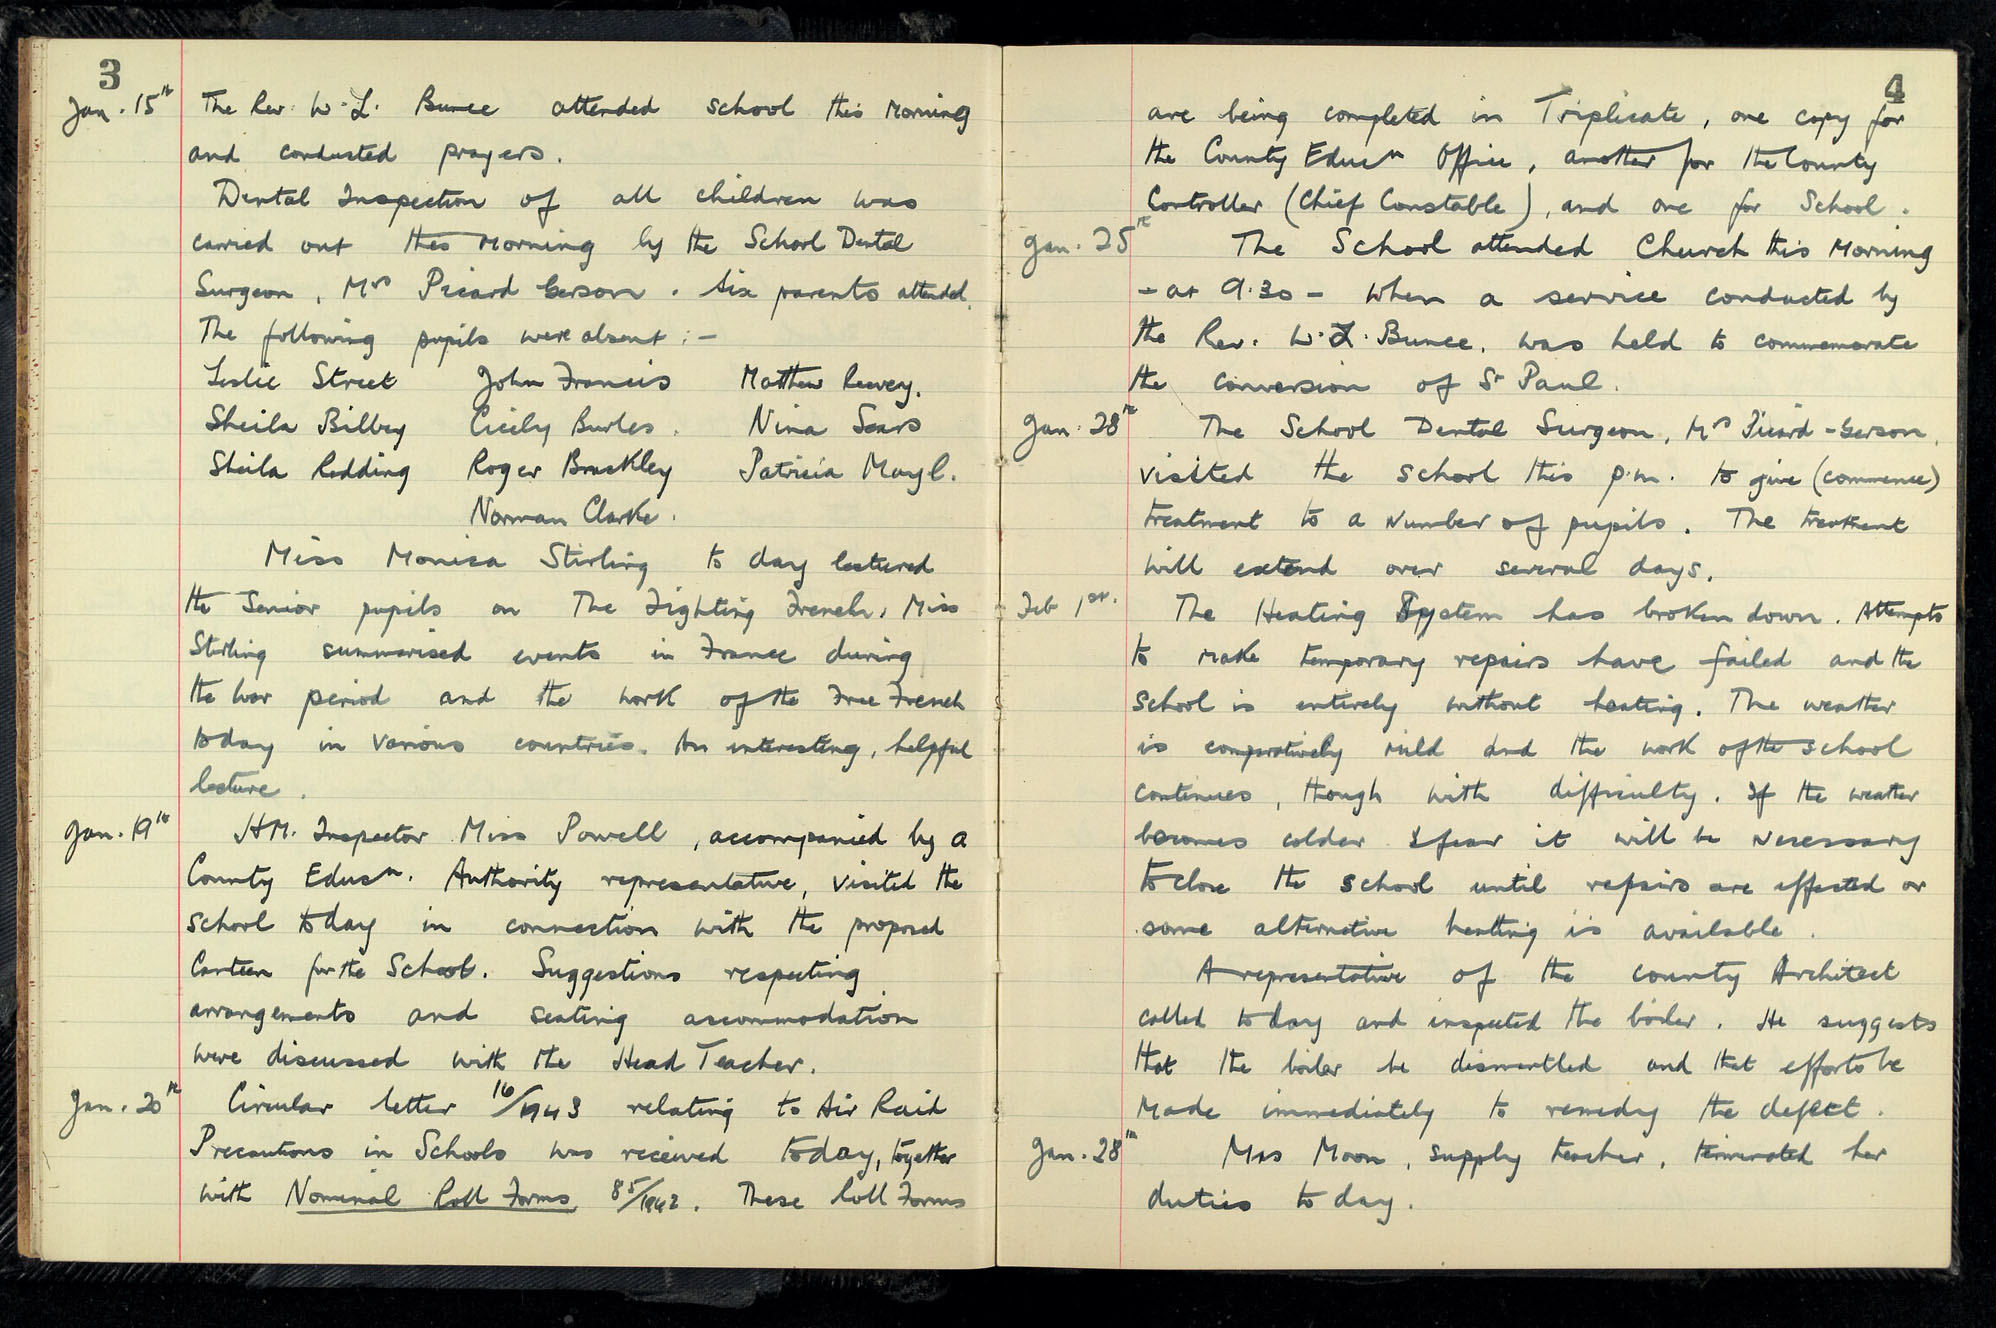 3
Jan. 15th The Rev. W. L. Bunce attended school this morning
and conducted prayers.
Dental Inspection of all children was
carried out this morning by the School Dental
Surgeon, Mrs Picard Gerson. Six parents attended.
The following pupils were absent :-
Leslie Street John Francis Matthew Reavey.
Sheila Bilbey Cicily Burles. Nina Sears
Sheila Redding Roger Brackley Patricia
Norman Clarke.
Miss Monica Stirling to day lectured
the Senior pupils on The Fighting French. Miss
Stirling summarised events in France during
the War period and the work of the Free French
today in various countries. An interesting, helpful
lecture.
Jan. 19th H.M. Inspector Miss Powell, accompanied by a
County Educn. Authority representative, visited the
school today in connection with the proposed
Canteen for the School. Suggestions respecting
arrangements and seating accommodation
were discussed with the Head Teacher.
Jan. 20th Circular letter 16/1943 relating to Air Raid
Precautions in Schools was received today, together
with Nominal Roll Forms 85/1942. These Roll Forms
4
are being completed in Triplicate, one copy for
the County Educn Office, another for the County
Controller (Chief Constable), and one for School.
Jan. 25th The School attended Church this morning
- at 9.30 - when a service conducted by
the Rev. W. L. Bunce, was held to commemorate
the conversion of St Paul.
Jan. 28th The School Dental Surgeon, Mrs Picard-Gerson,
visited the school this p.m. to give (commence)
treatment to a number of pupils. The treatment
will extend over several days.
Feb 1st. The Heating System has broken down. Attempts
to make temporary repairs have failed and the
School is entirely without heating. The weather
is comparatively mild and the work of the school
continues, though with difficulty. If the weather
becomes colder I fear it will be necessary
to close the school until repairs are effected or
some alternative heatting is available.
A representative of the County Architect
called today and inspected the boiler. He suggests
that the boiler be dismantled and that efforts be
made immediately to remedy the defect.
Jan. 28th Mrs Moon, supply teacher, terminated her
duties to day.